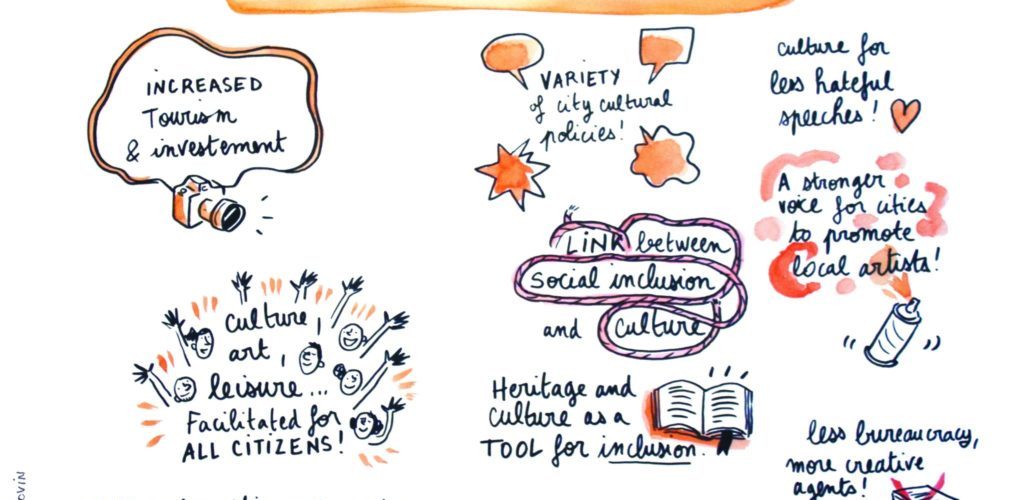 INCREASED
Tourism
& investement
VARIETY
of city cultural
policies!
culture for
less hateful
speeches!
A stronger
voice for cities
to promote
local artists!
LINK between
social inclusion
and culture
culture,
art,
leisure...
Facilitated for
ALL CITIZENS!
Heritage and
culture as a
TOOL for inclusion.
less bureaucracy,
more creative
agents!